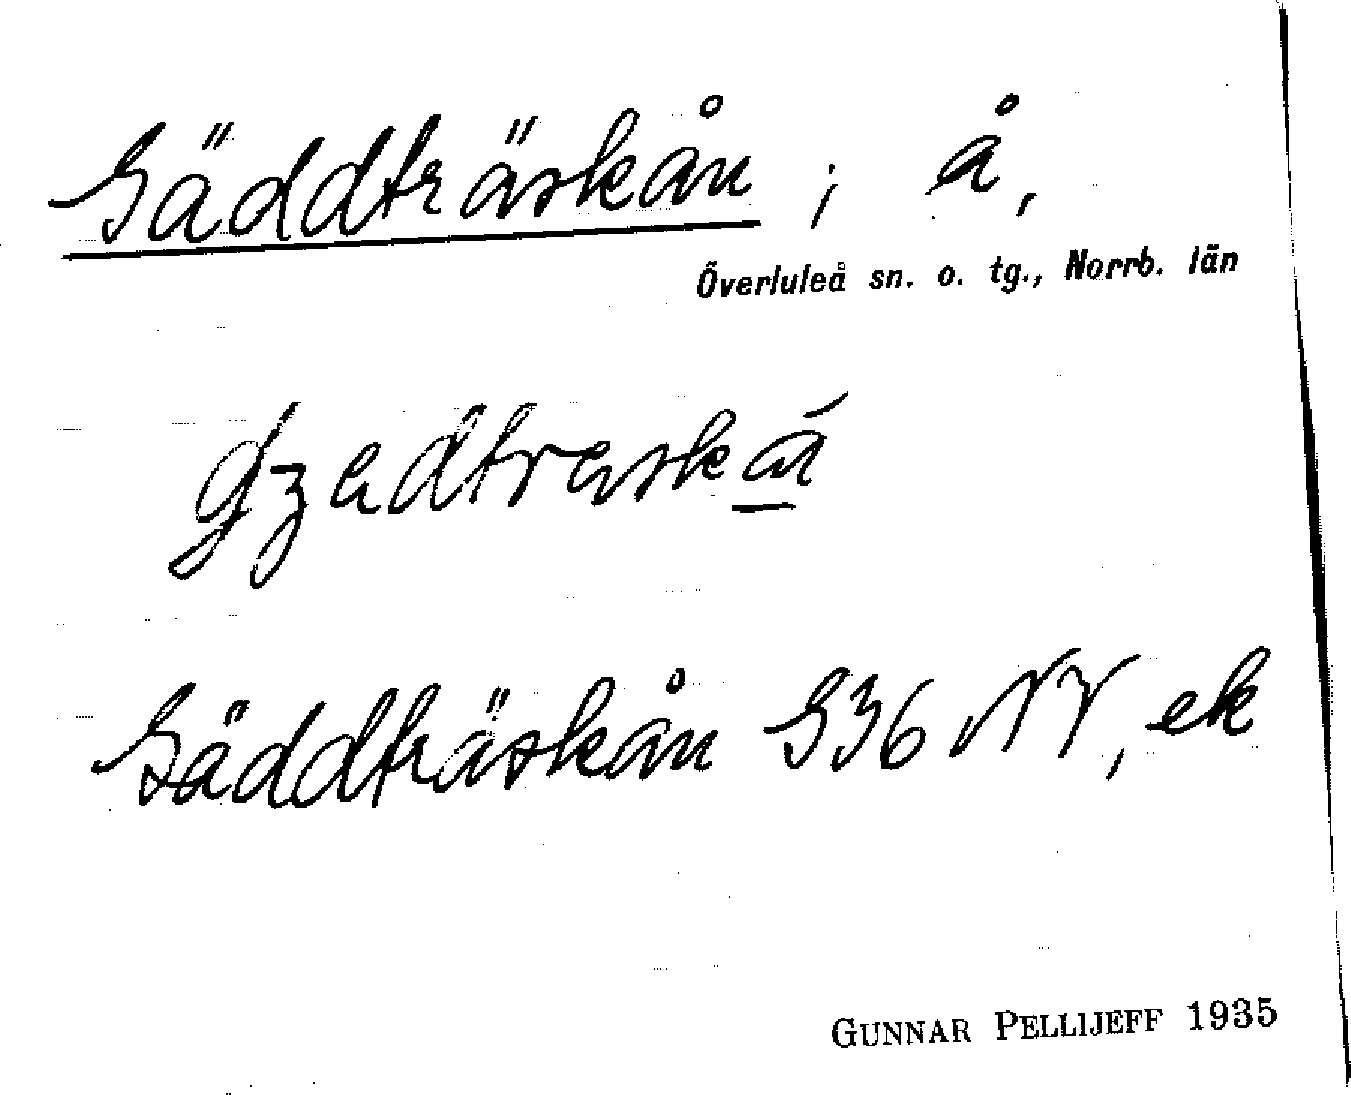 Gäddträskån ; å,
Överluleå sn. o. tg., Norrb. län
Gäddträskån G36 NV, ek
GUNNAR PELLIJEFF 1935